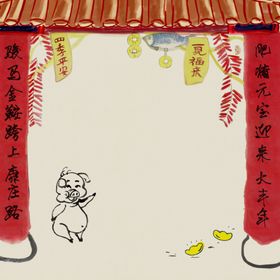 肥猪元宝迎来大丰年
骏马金鞍跨上康庄路
四季平安
福来